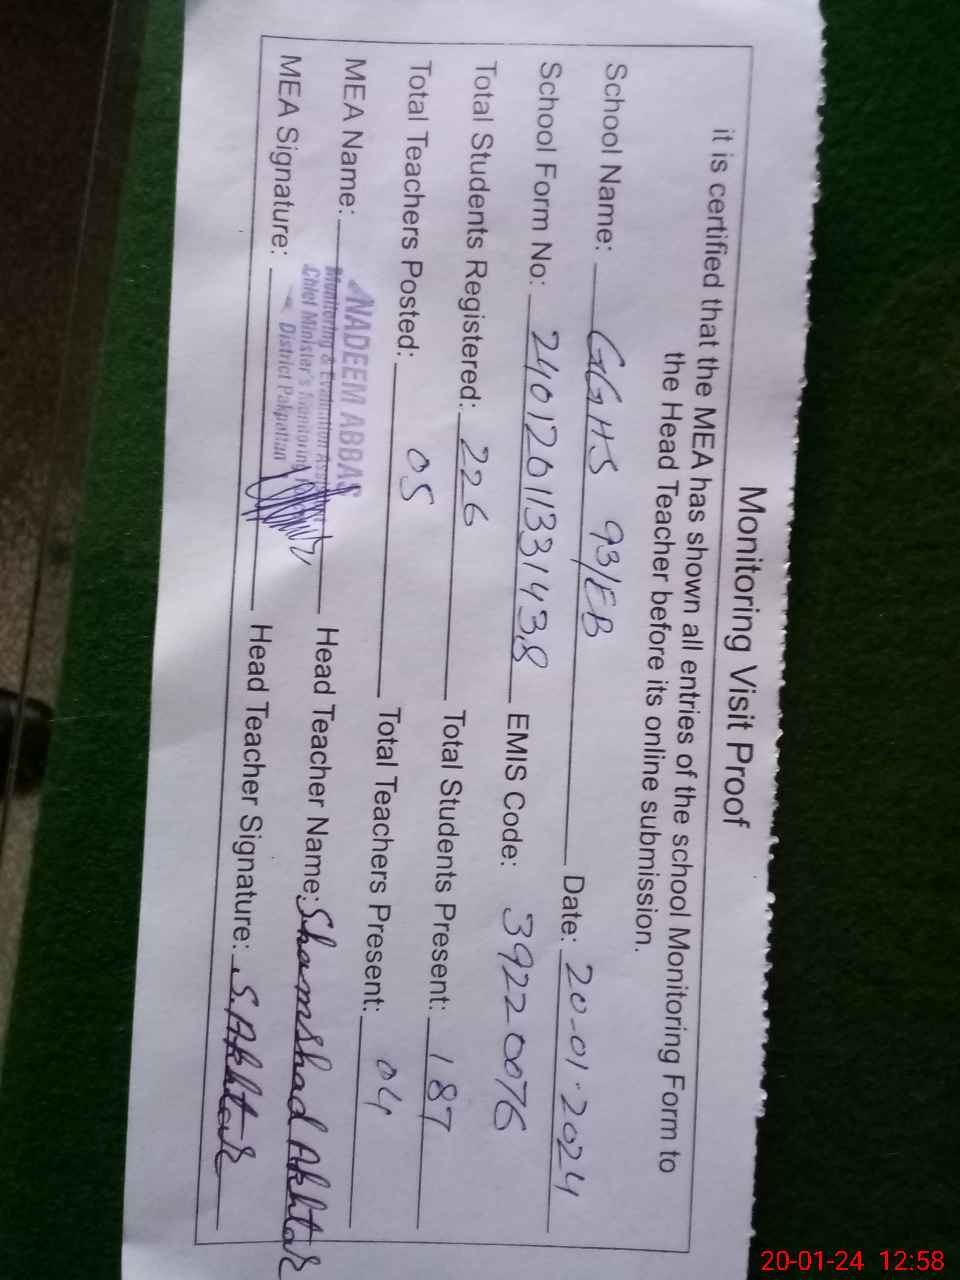 Monitoring Visit Proof
it is certified that the MEA has shown all entries of the school Monitoring Form to
the Head Teacher before its online submission.
School Name: GGHS 93/EB Date: 20-01-2024
School Form No.: 24012611331438 EMIS Code: 39220076
Total Students Registered: 226 Total Students Present: 187
Total Teachers Posted: 05 Total Teachers Present: 04
MEA Name: NADEEM ABBAS Head Teacher Name: Shamshad Akhtar
Monitoring & Evaluation
Chief Minister's Monitoring
District Pakpattan
MEA Signature: Head Teacher Signature: S. Akhtar
20-01-24 12:58